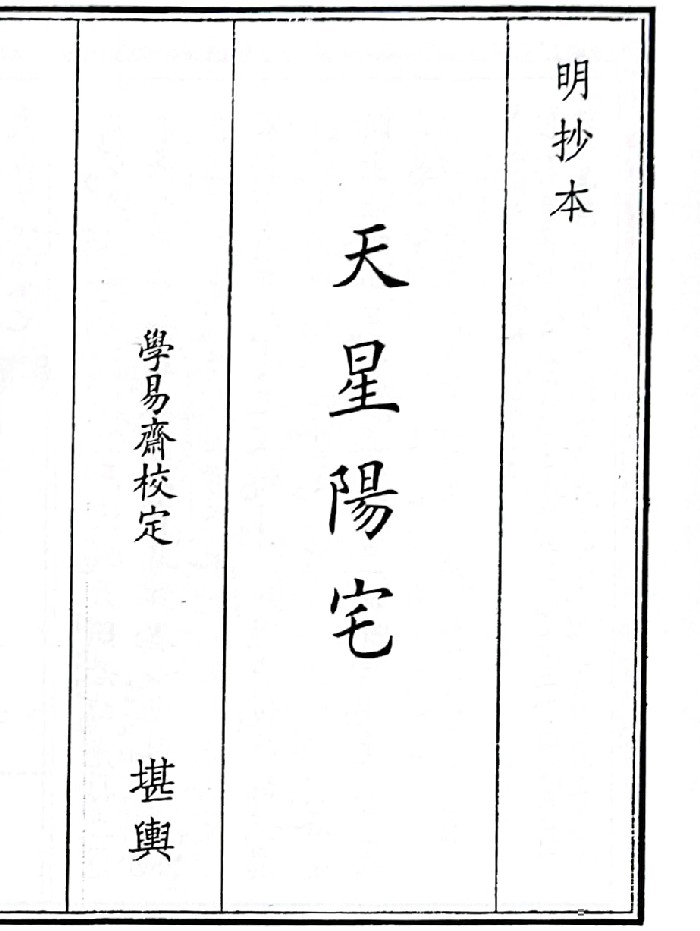 明抄本
天星陽宅
學易齋校定
堪輿